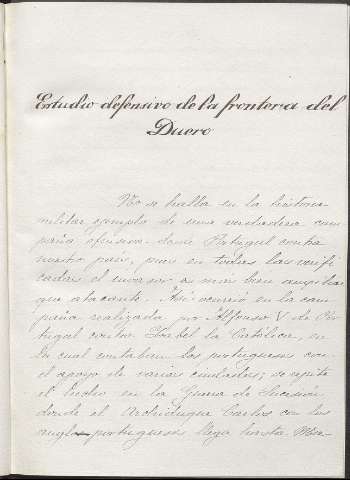 Estudio defensivo de la frontera del
Duero
No se halla en la historia
militar ejemplo de una verdadera cam-
paña ofensiva desde Portugal contra
nuestro pais, pues en todas las verifi-
cadas el invasor es mas bien auxiliar
que atacante. Asi ocurrió en la cam-
paña realizada por Alfonso V de Por-
tugal contra Isabel la Católica, en
la cual contaban los portugueses con
el apoyo de varias ciudades; se repite
el hecho en la Guerra de Sucesión
donde el Archiduque Carlos con los
anglo portugueses llega hasta Ma-